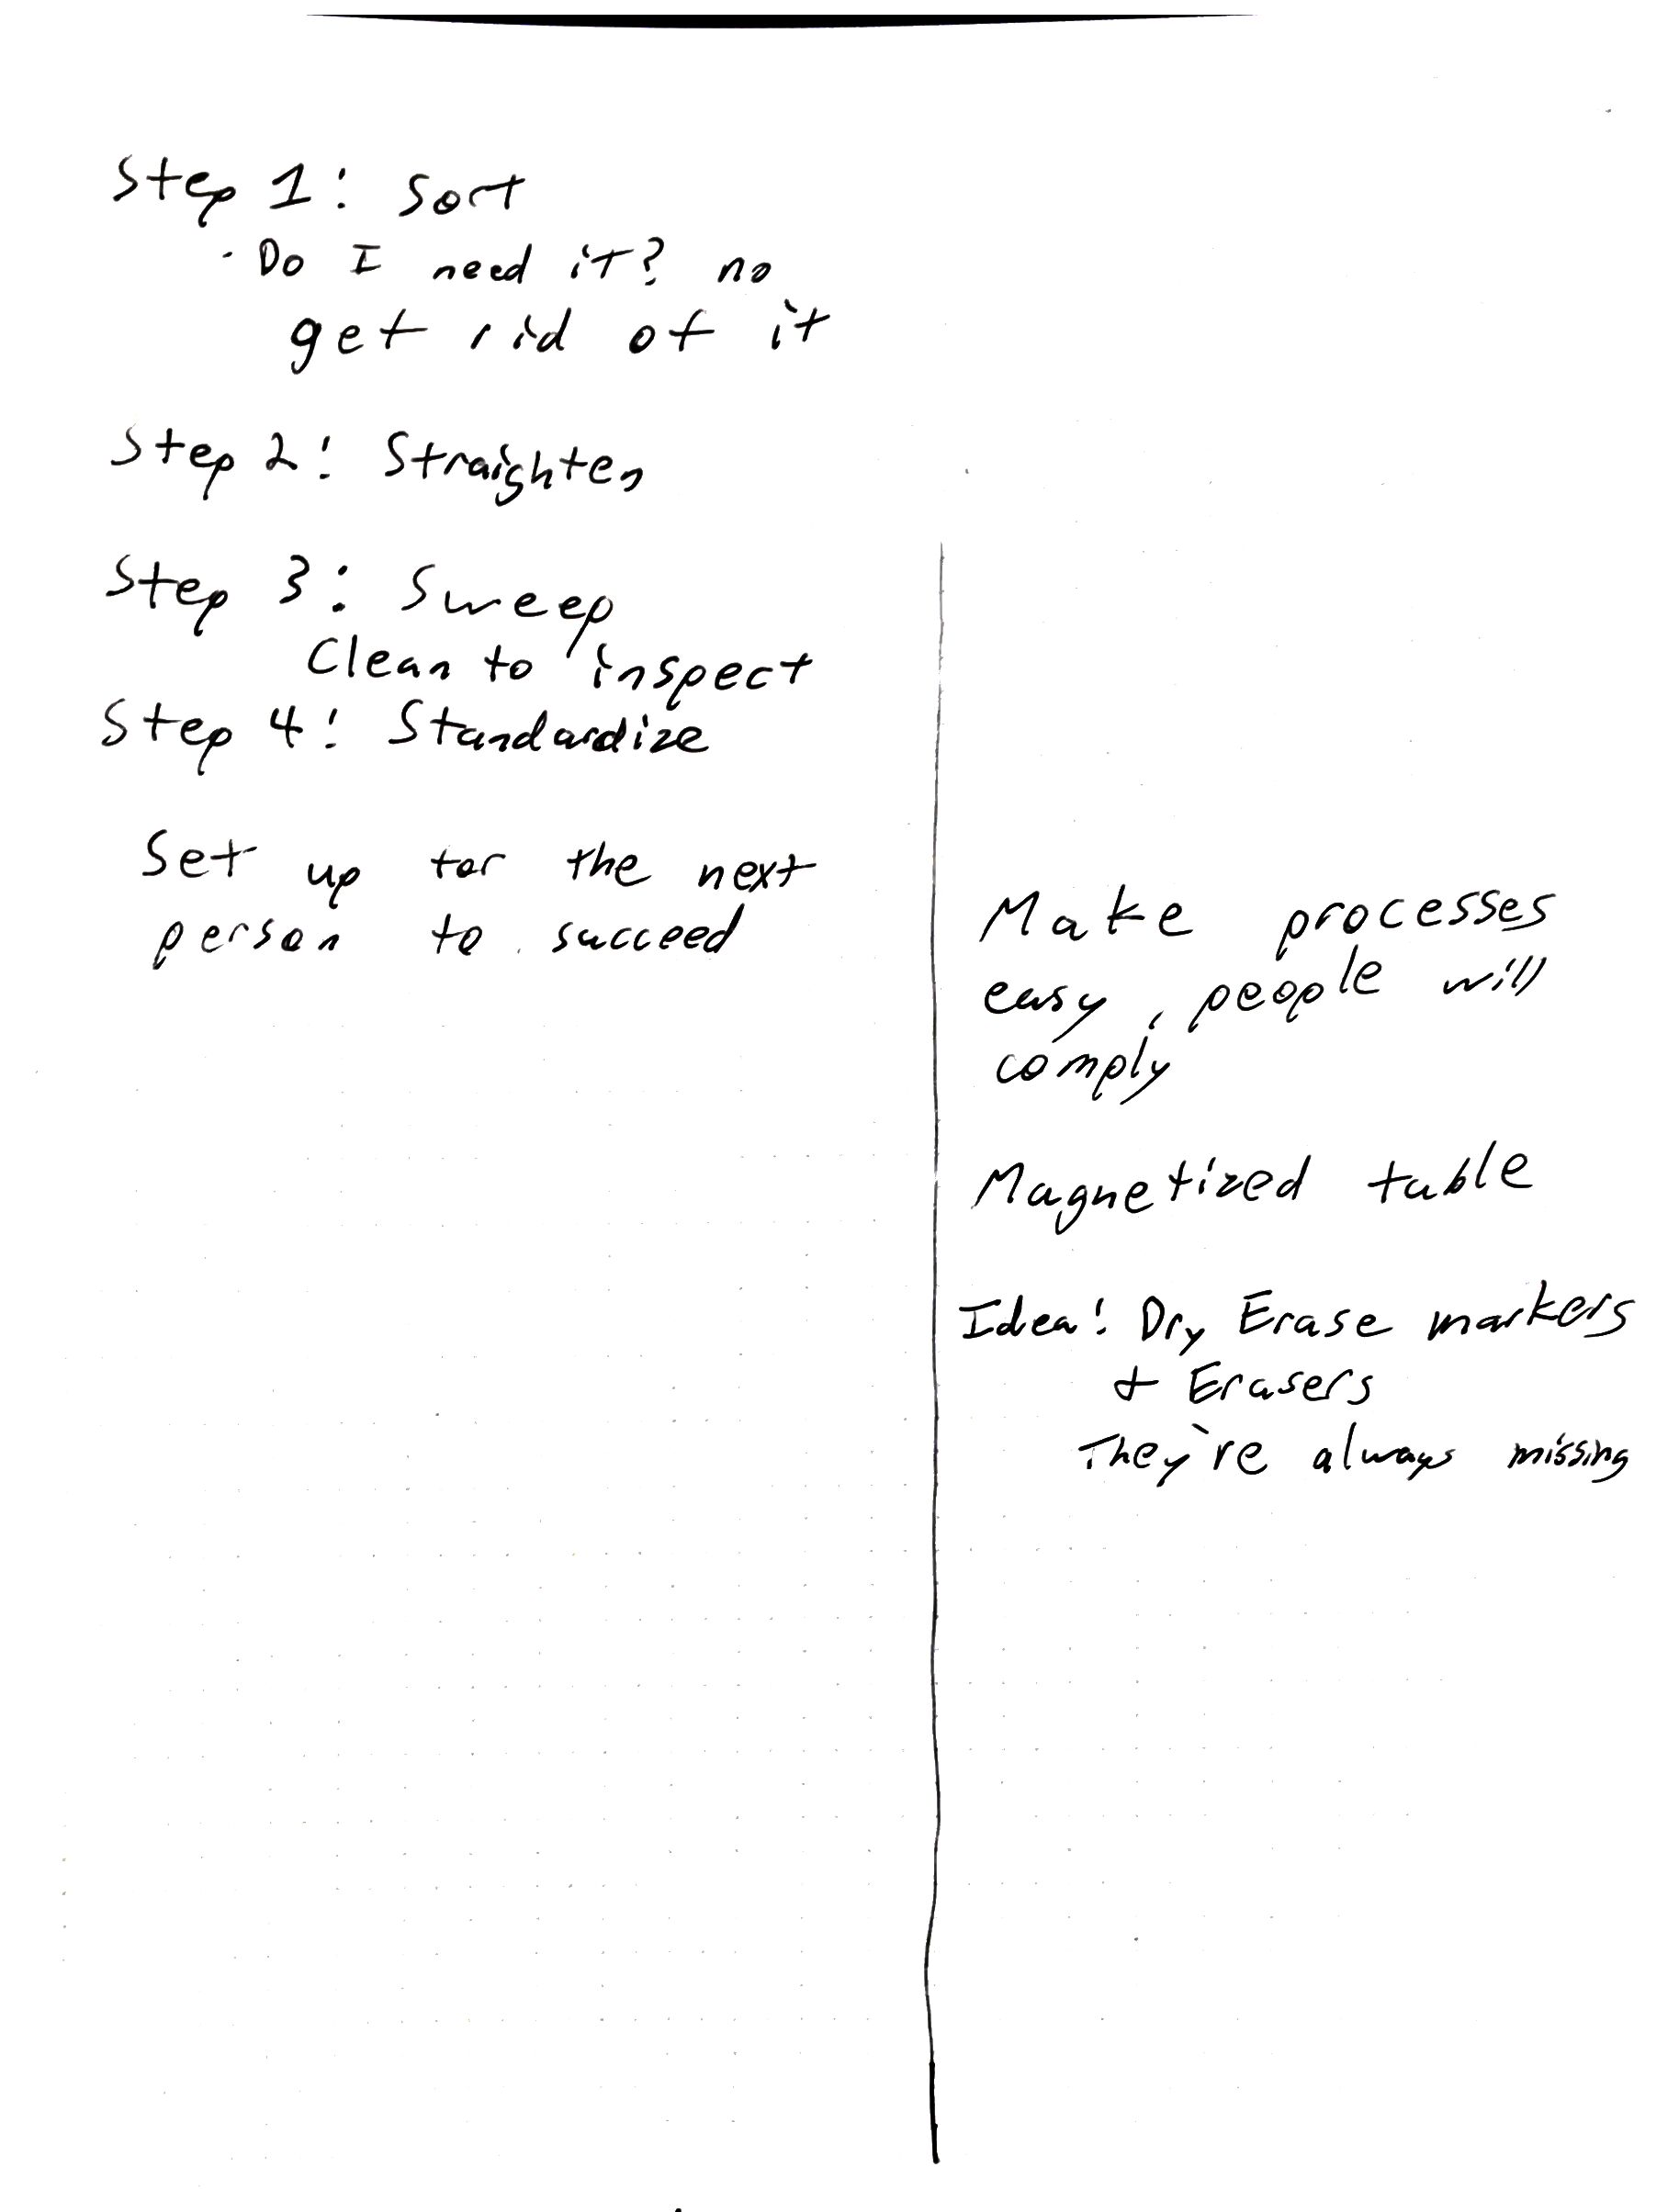 Step 1: Sort
· Do I need it? no
get rid of it
Step 2: Straighten
Step 3: Sweep
Clean to inspect
Step 4: Standardize
Set up for the next
person to succeed
Make processes
easy, people will
comply
Magnetized table
Idea: Dry Erase markers
& Erasers
They're always missing